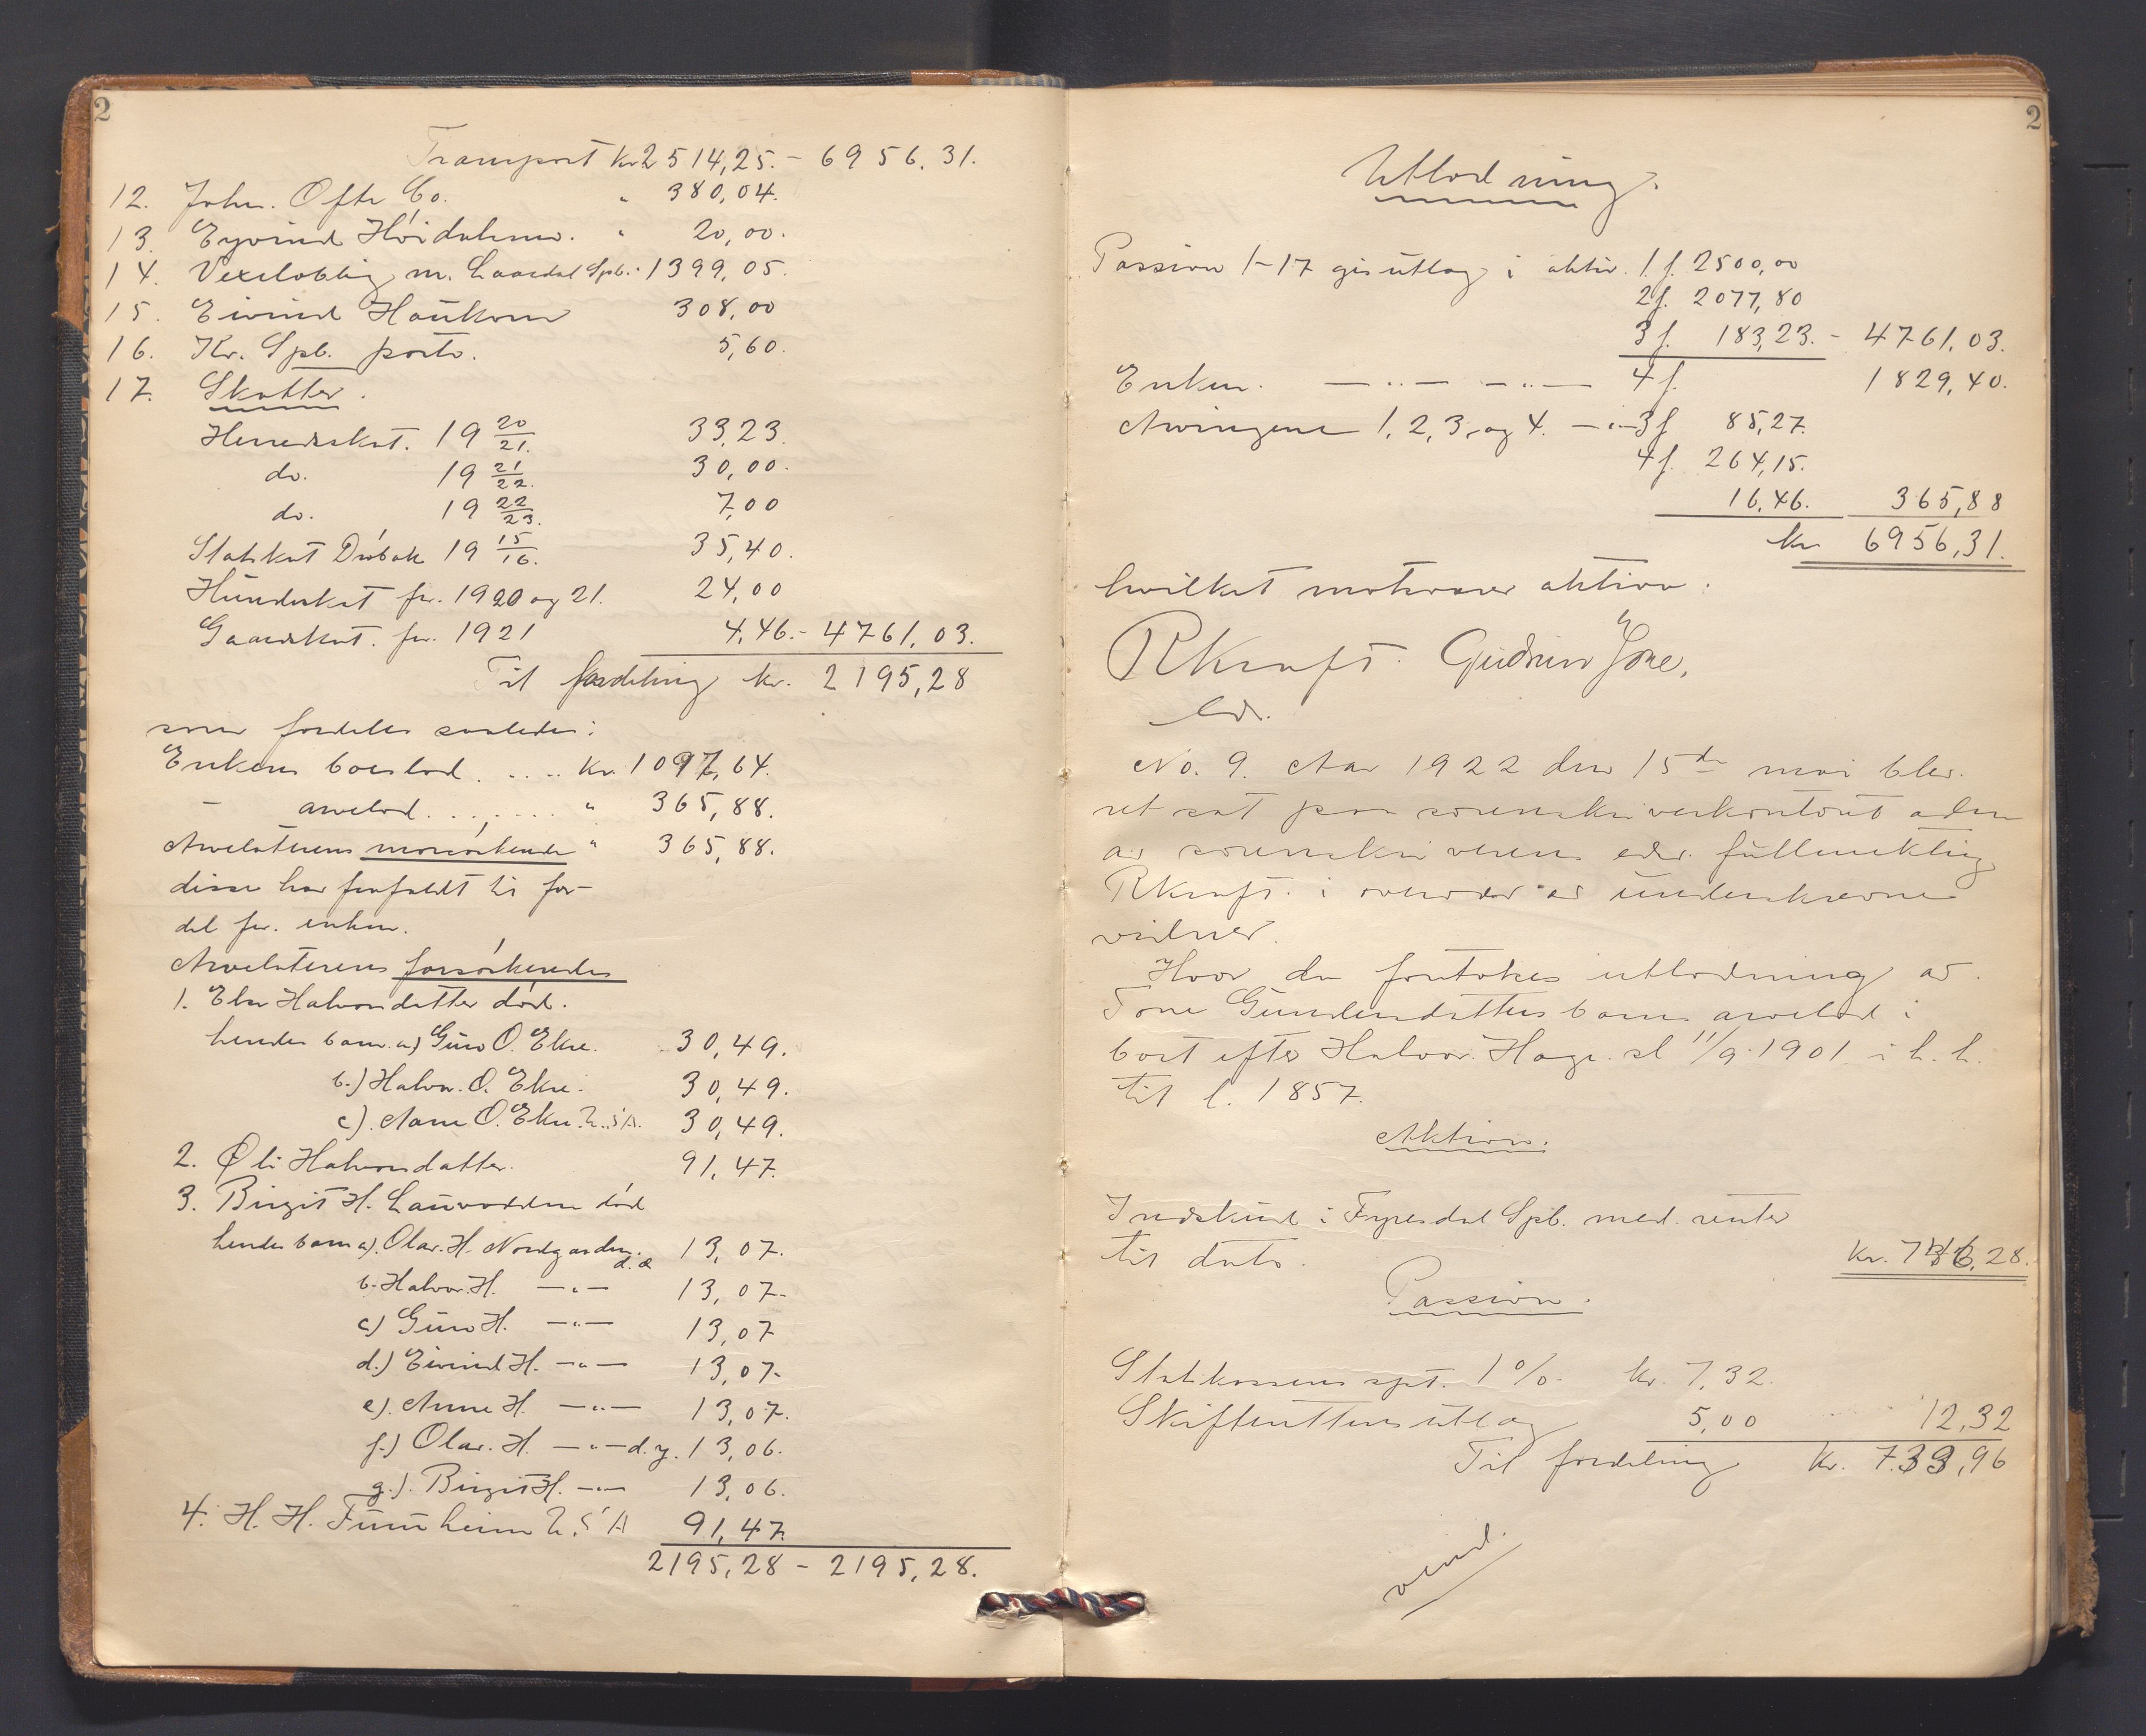 2
Transport kr 2514,25. - 6956.31.
12. John. Ofte Co. " 380,04.
13. Eyvind Höidalsmo. " 20,00.
14. Vexeloblig. m. Laardal Spb. " 1399,05.
15. Eivind Haukom 308,00
16. Kr. Spb. porto. 5,60.
17. Skatter.
Herredsskat. 19 20/21. 33,23.
do. 19 21/22. 30,00.
do. 19 22/23. 7,00
Statskat Dröbak 19 15/16. 35,40.
Hundeskat for 1920 og 21. 24,00
Gaardskat. for 1921 4,46. - 4761,03.
Til fordeling kr. 2195,28
som fordeles saaledes:
Enkens boeslod. .... Kr. 1097,64.
— arvelod......... " 365,88.
Arvelaterens morsøskende " 365,88.
disse har frafaldt til for-
del for enken.
Arvelaterens farsøskende
1. Halvorsdatter død.
hendes barn a) Guro O. Ekre. 30,49.
b.) Halvor. O. Ekre. 30,49.
c). Aane O. Ekre. U.S.A. 30,49.
2. Halvorsdatter. 91,47.
3. Birgit H. Lauvodden død
hendes barn a). Olav. H. Nordgarden. d.æ 13,07.
b. Halvor. H. —"— 13,07.
c) Guro H. —"— 13,07
d.) Eivind H. —"— 13,07.
e). Anne H. —"— 13,07.
f.) Olav. H. —"— d.y. 13,06.
g.). Birgit H. —"— 13,06.
4. H. H. U.S.A 91,47.
2195,28 - 2195,28.
2
Utlodning.
Passiva 1-17 gis utlag i aktiv. 1 f. 2500,00
2 f. 2077,80
3 f. 183,23. - 4761,03.
Enken. —"— —"— 4 f. 1829,40.
Arvingene 1, 2, 3, og 4. —"— 3 f 85,27.
4 f. 264,15.
16,46. 365,88
kr 6956,31.
hvilket motsvarer aktiva.
RKraft. Gudrun
No. 9. Aar 1922 den 15de mai blev
ret sat paa sorenskriverkontoret adm
av sorenskriveren edsv. fuldmektig
RKraft. i overvær av underskrevne
vidner.
Hvor da foretokes utlodning av
Tone Gundersdatters barns arvelod i
boet efter Halvor Hage. sl 11/9. 1901 i h. h.
til l. 1857.
Aktiva.
Indskud i Fyresdal Spb. med. renter
til dato. Kr. 28.
Passiva.
Statskassens 1 %. kr. 7,32.
Skifterettens utlag 5,00 12,32
Til fordeling Kr. 733,96
vend.